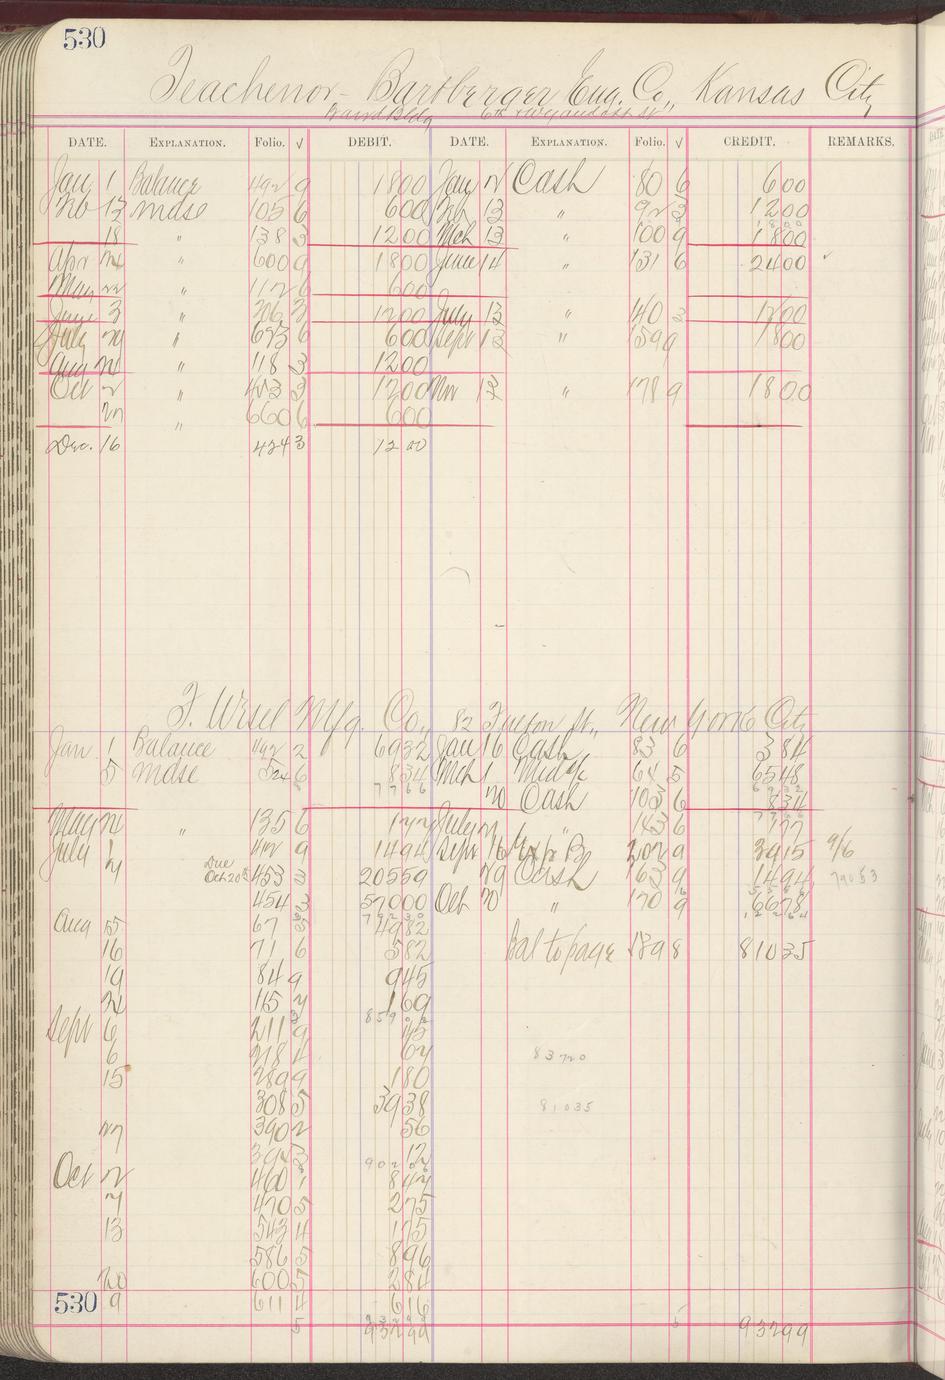 530
Teachenor-Bartberger Eng. Co., Kansas City
Baird Bldg 6th & Wyandotte St
DATE. EXPLANATION. Folio. √ DEBIT. DATE. EXPLANATION. Folio. √ CREDIT. REMARKS.
Jan 1 Balance 492 9 1800 Jany 12 Cash 80 6 600
Feb 13 Mdse 105 6 600 Feb 13 " 92 3 1200
18 " 138 3 1200 Mch 13 " 100 9 1800
Apr 24 " 600 9 1800 June 14 " 131 6 2400
May 22 " 112 6 600
June 3 " 206 3 1200 July 13 " 140 3 1200
July 29 " 693 6 600 Sept 13 " 159 9 1800
Aug 24 " 118 3 1200
Oct 2 " 453 3 1200 Nov 13 " 178 9 1800
27 " 660 6 600
Dec. 16 424 3 12 00
F. Wesel Mfg. Co., 82 Fulton St., New York City
Jan 1 Balance 492 2 6932 Jan 16 Cash 83 6 384
5 Mdse 524 6 834 Mch 1 Mdse 64 5 6548
7766 6932
20 Cash 103 6 834
7766
May 24 " 135 6 177 July 27 " 143 6 177
July 1 412 9 1494 Sept 16 Exp B 202 9 3915 9/6
7 Due Oct 20th 453 3 20559 29 Cash 163 9 1494 79053
454 3 57000 Oct 20 " 170 9 6678
Aug 15 67 5 4982
16 71 6 582 Bal to page 189 8 81035
19 84 9 945
24 115 7 169
Sept 6 211 9 45
6 218 4 67 83720
15 289 9 180
308 5 3938 81035
27 390 2 56
394 3 12
Oct 2 460 1 847
7 470 5 275
13 543 4 175
586 5 896
20 600 5 284
530 9 611 4 616
5 93299 5 93299